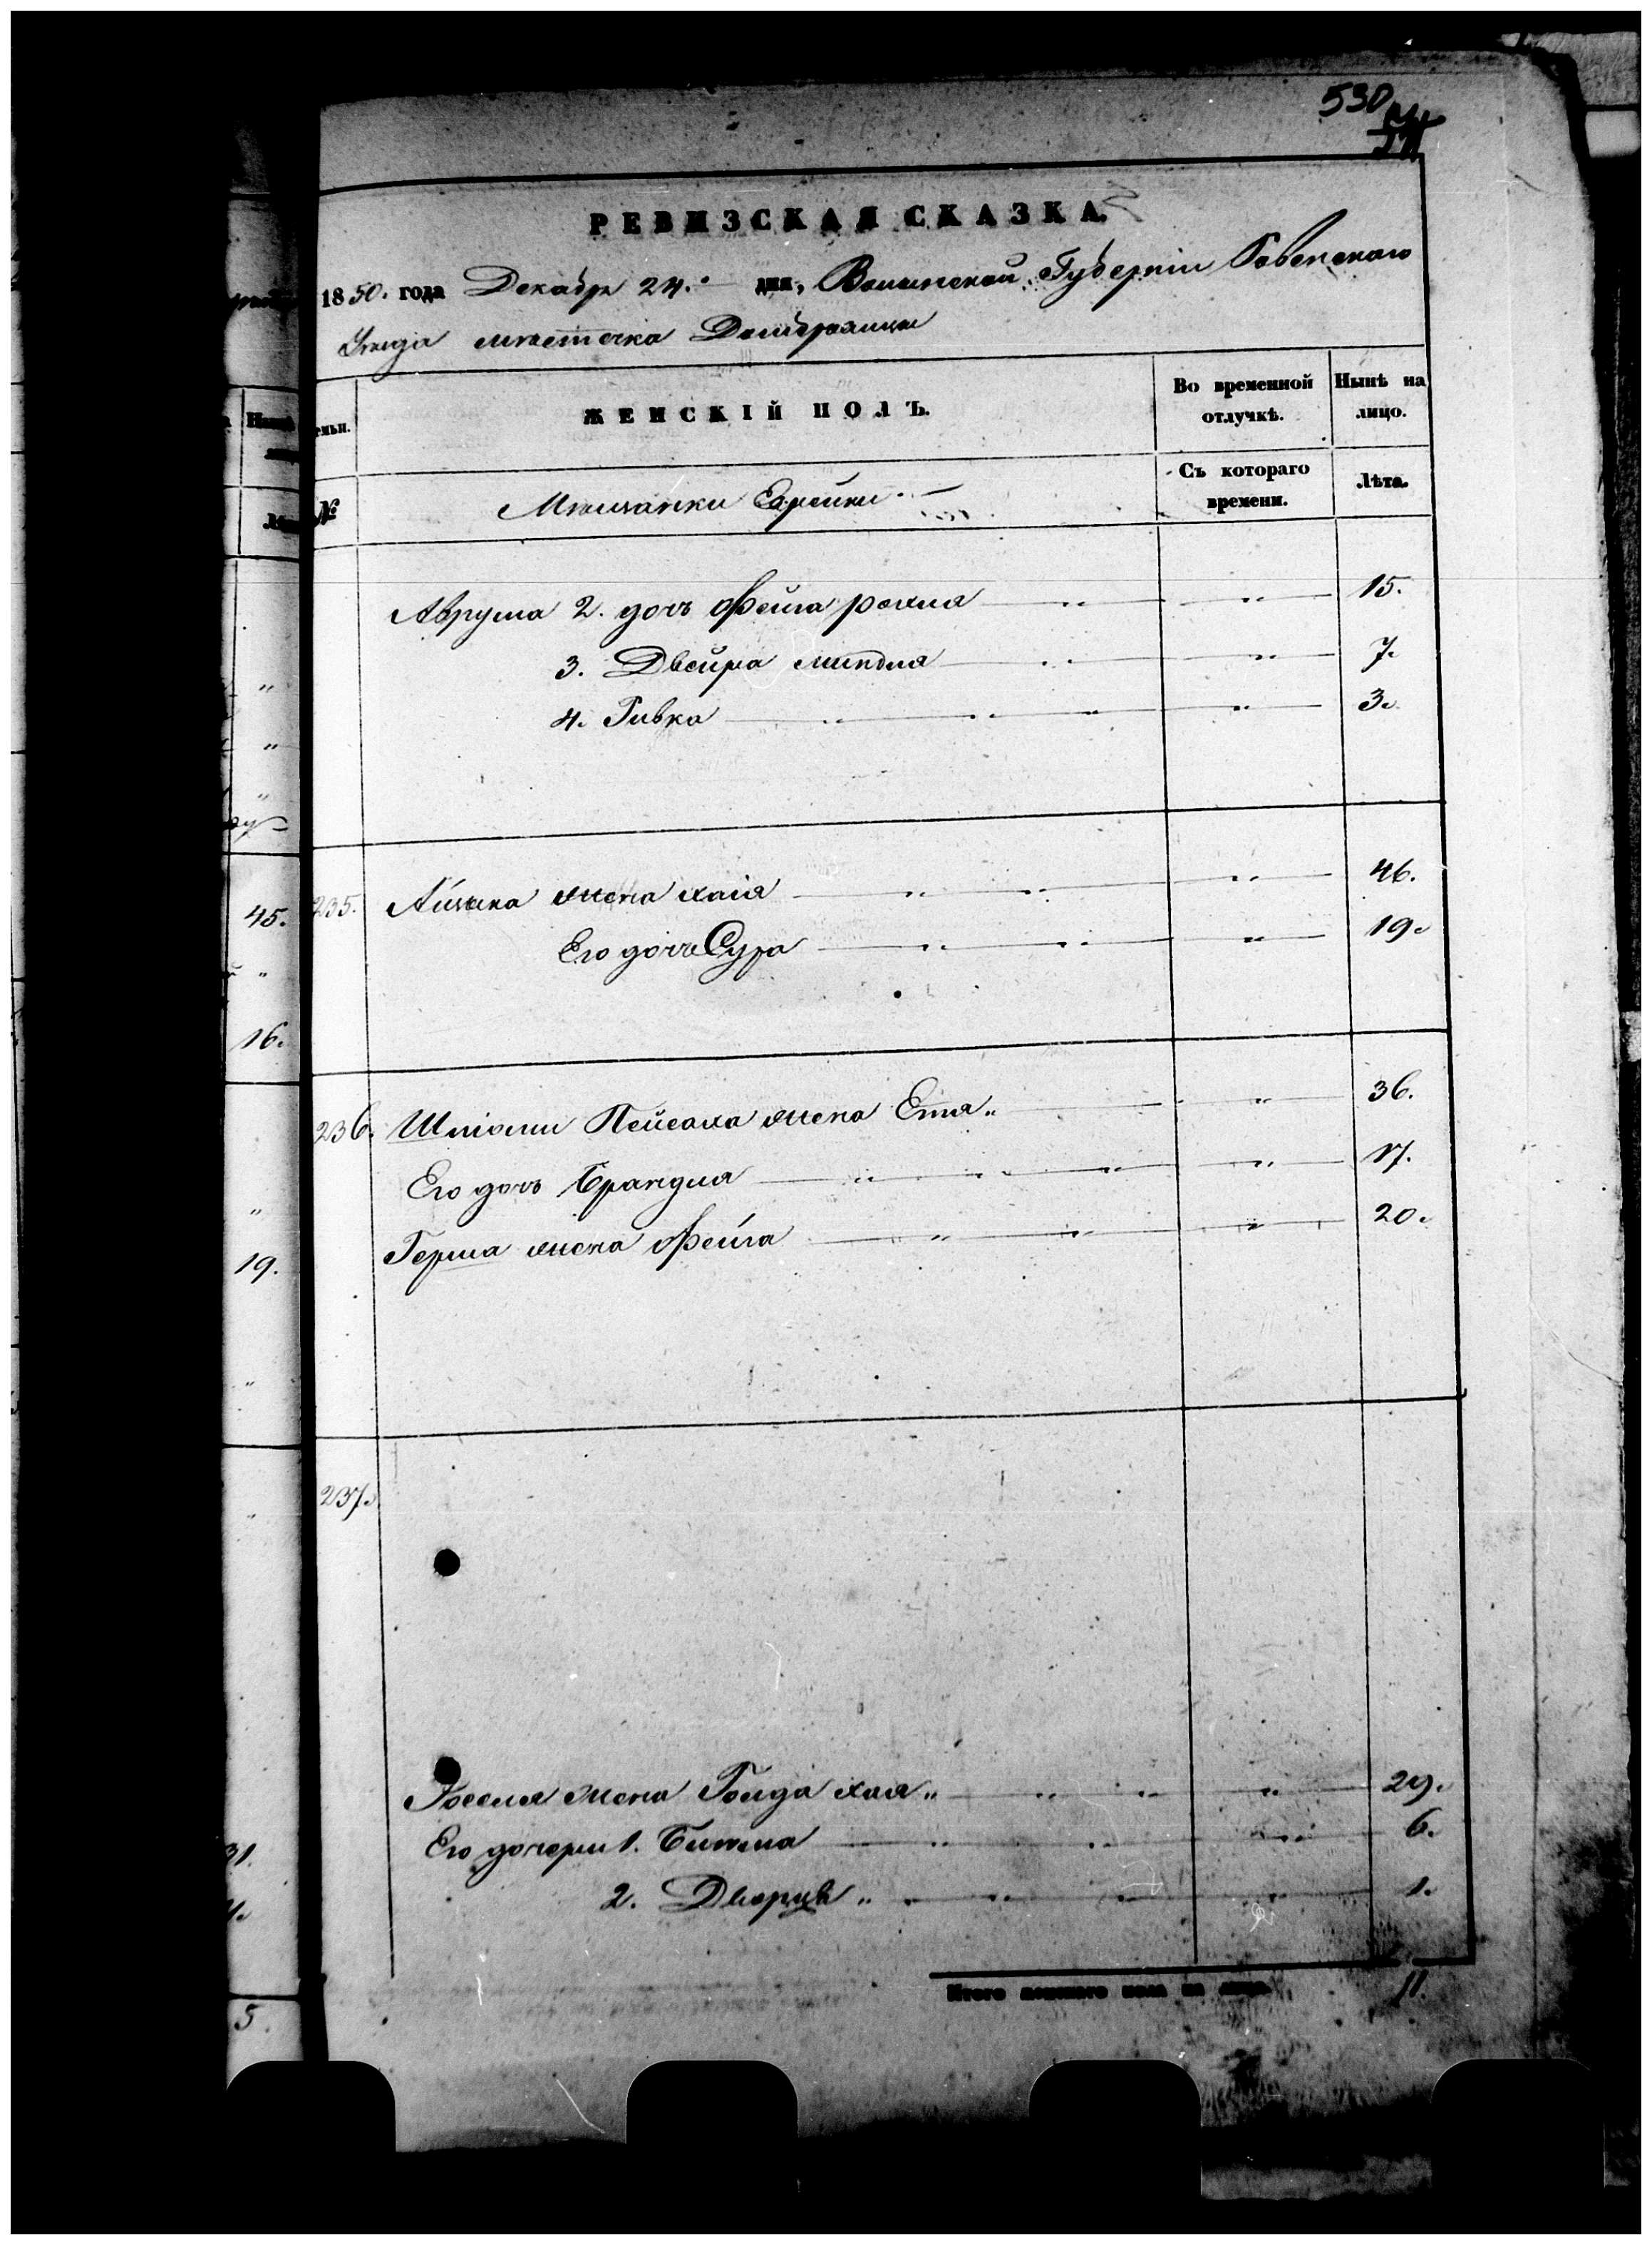 530
РЕВИЗСКАЯ СКАЗКА.
1850. года Декабря 24. дня, Волынской Губерніи Ровенскаго
Уезда местечка Домбровицы
емьи.
ЖЕНСКІЙ ПОЛЪ.
Во временной отлучкѣ.
Нынѣ на лицо.
№
Мещанки Еврейки
Съ котораго времени.
Лѣта.
Аврума 2. дочь Фейга рохля " " 15.
3. Двейра миндля " " 7.
4. Ривка " " " " 3.
235. жена хаія " " " 46.
Его дочь Сура " " " 19.
236. Шліоми Пейсаха жена Етя " " 36.
Его дочь Брандля " " " " 17.
Герша жена Фейга " " " 20.
237.
Иоселя жена Голда хая " " " " 29.
Его дочери 1. " " " 6.
2. " " " " 1.
Итого женскаго пола на лицо 11.
45.
16.
19.
31.
5.